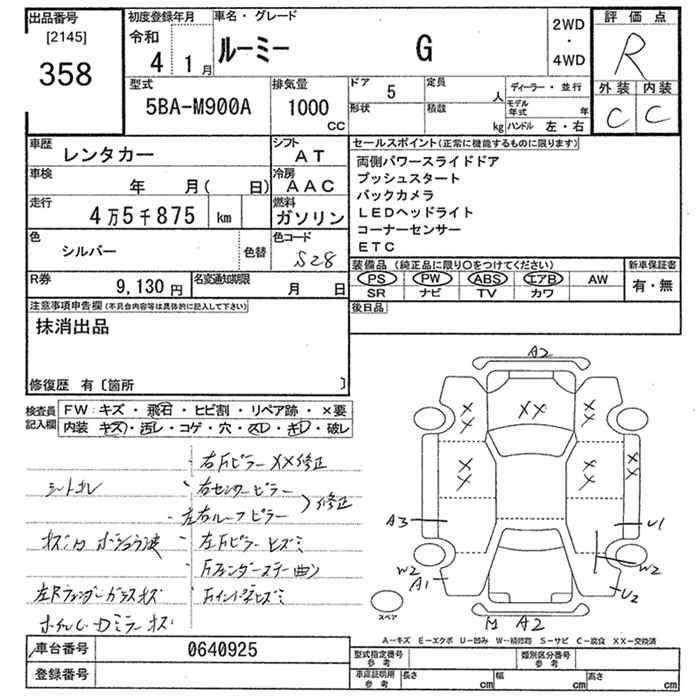 出品番号
[2145]
358
初度登録年月
令和
4 1月
車名・グレード
ルーミー G
2WD
・
4WD
評価点
R
外装 内装
C C
型式
5BA-M900A
排気量
1000
CC
ドア 5
形状
定員 人
積載 kg
ディーラー・並行
モデル年式 年
ハンドル 左・右
車歴
レンタカー
シフト
AT
車検
年 月( 日)
冷房
AAC
走行
4万5千875 km
燃料
ガソリン
色
シルバー
色替
色コード
S28
R券
9,130円
名変通知期限
月 日
セールスポイント(正常に機能するものに限ります)
両側パワースライドドア
プッシュスタート
バックカメラ
LEDヘッドライト
コーナーセンサー
ETC
装備品(純正品に限り○をつけてください)
PS PW ABS エアB AW
SR ナビ TV カワ
新車保証書
有・無
後日品
注意事項申告欄(不具合内容等は具体的に記入して下さい)
抹消出品
修復歴 有〔箇所 〕
検査員
記入欄
FW:キズ・飛石・ヒビ割・リペア跡・×要
内装 キズ・汚レ・コゲ・穴・スレ・キレ・破レ
右Fピラー XX修正
右センターピラー
左右ルーフピラー
修正
左Fピラー ヒズミ
Fフェンダーステー曲り
Fインパネヒズミ
シートキレ
左Rフェンダーガラスキズ
ホイルC・Dミラーキズ
A2
XX
XX
XX
XX
XX
XX
A3
U1
W2
A1
W2
U2
A2
スペア
A-キズ E-エクボ U-凹み W-補修跡 S-サビ C-腐食 XX-交換済
車台番号
0640925
登録番号
型式指定番号
参考
類別区分番号
参考
車庫証明用
参考
長さ cm
幅 cm
高さ cm